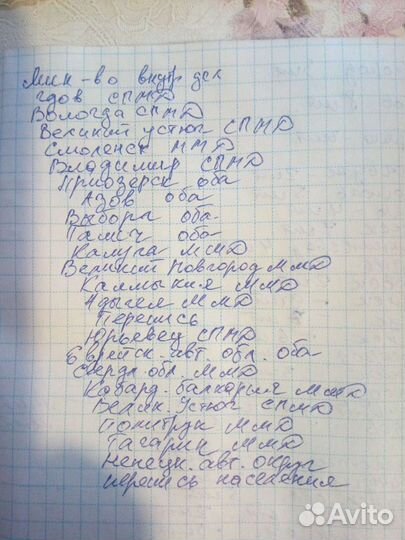 Мин-во внутр дел
гдов СПМД
Вологда СПМД
Великий устюг СПМД
Смоленск ММД
Владимир СПМД
Приозерск оба
Азов оба
Выборг оба
Галич оба
Калуга ММД
Великий Новгород ММД
Калмыкия ММД
Адыгея ММД
Перепись
Юрьевец СПМД
Еврейск. авт. обл. оба
Свердл. обл. ММД
Кабард. балкария ММД
Велик. Устюг СПМД
Политрук ММД
Гагарин ММД
Ненецк. авт. округ
перепись населения
Avito